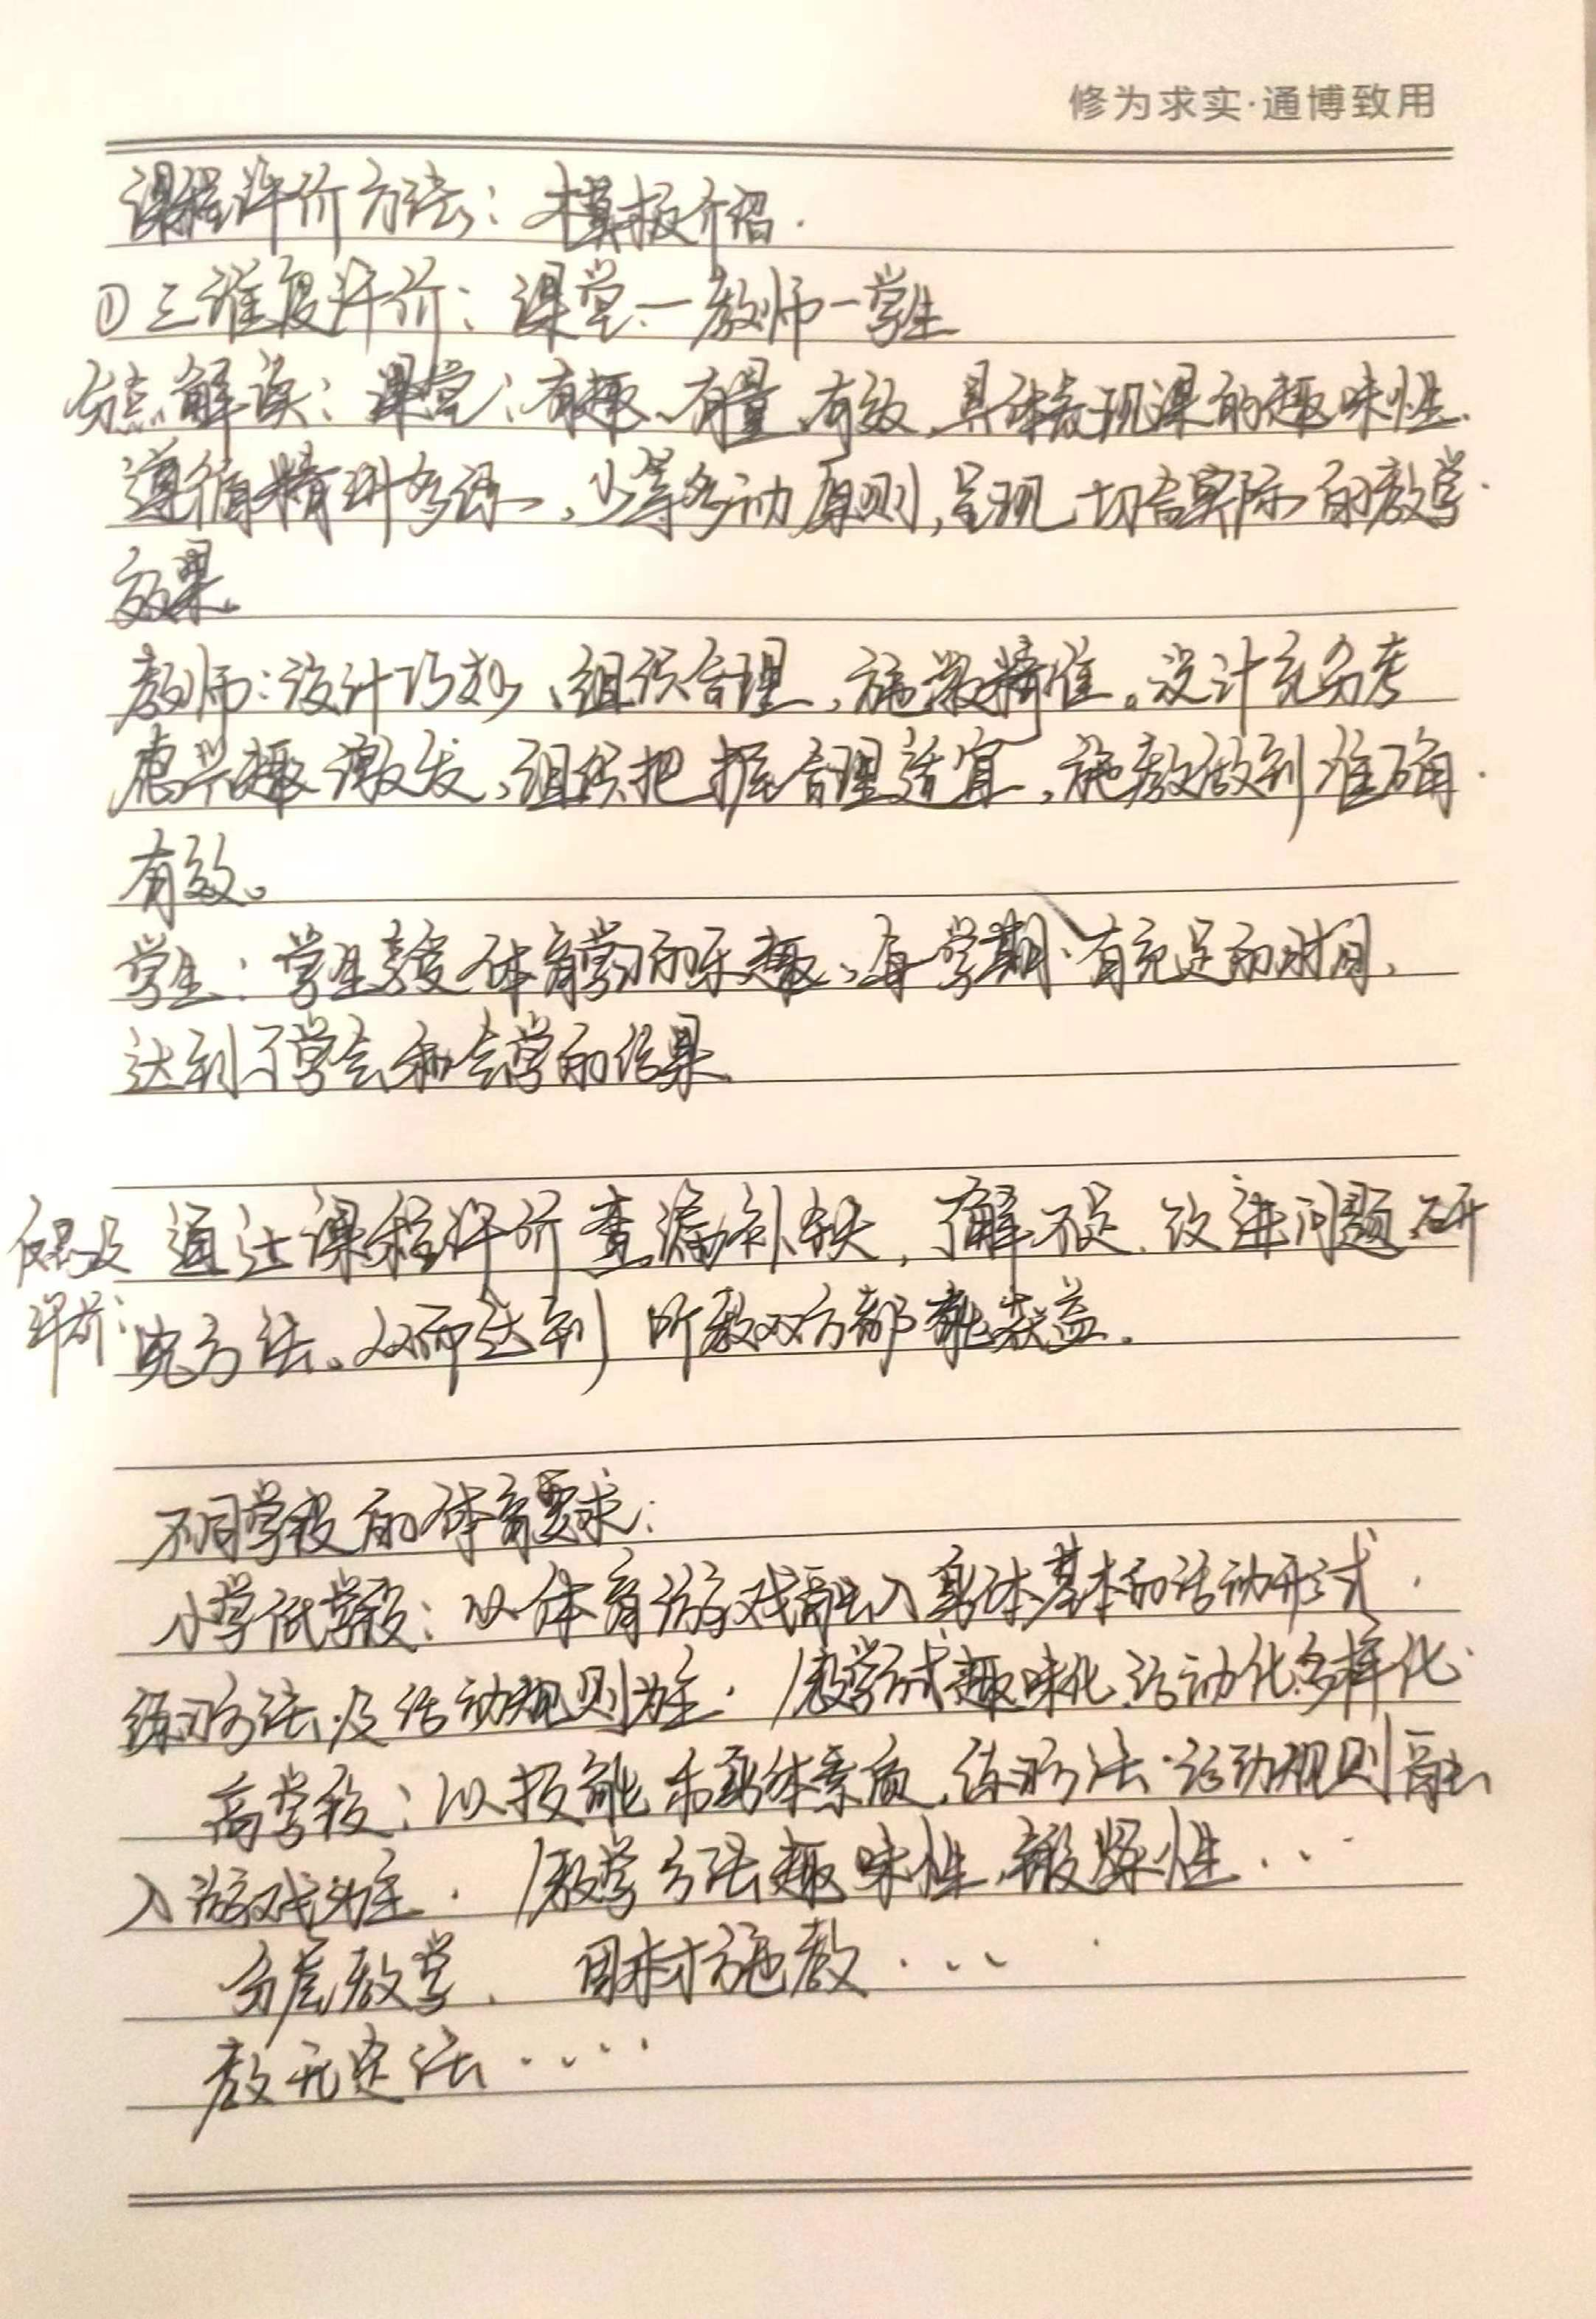 修为求实·通博致用
课程评价方法：模板介绍.
①三维度评价：课堂—教师—学生
分点解读：课堂：有趣、有量、有效，具体表现课的趣味性、
遵循精讲多练，少等多动原则，呈现切合实际的教学
效果。
教师：设计巧妙、组织合理，施教精准。设计充分考
虑兴趣激发，组织把握合理适宜，施教做到准确
有效。
学生：学生享受体育学习的乐趣、每学期有充足的时间，
达到了学会和会学的结果。
通过课程评价查漏补缺，了解不足，改进问题，研
评价：
究方法。从而达到听教双方都能获益。
不同学段的体育要求：
小学低学段：以体育游戏融入身体基本的活动形式，
练习方法及活动规则为主. /教学方式趣味化、活动化、多样化
高学段：以技能和身体素质，练习方法·活动规则融
入游戏为主. /教学方法趣味性、锻炼性…
分层教学、因材施教…
教无定法……